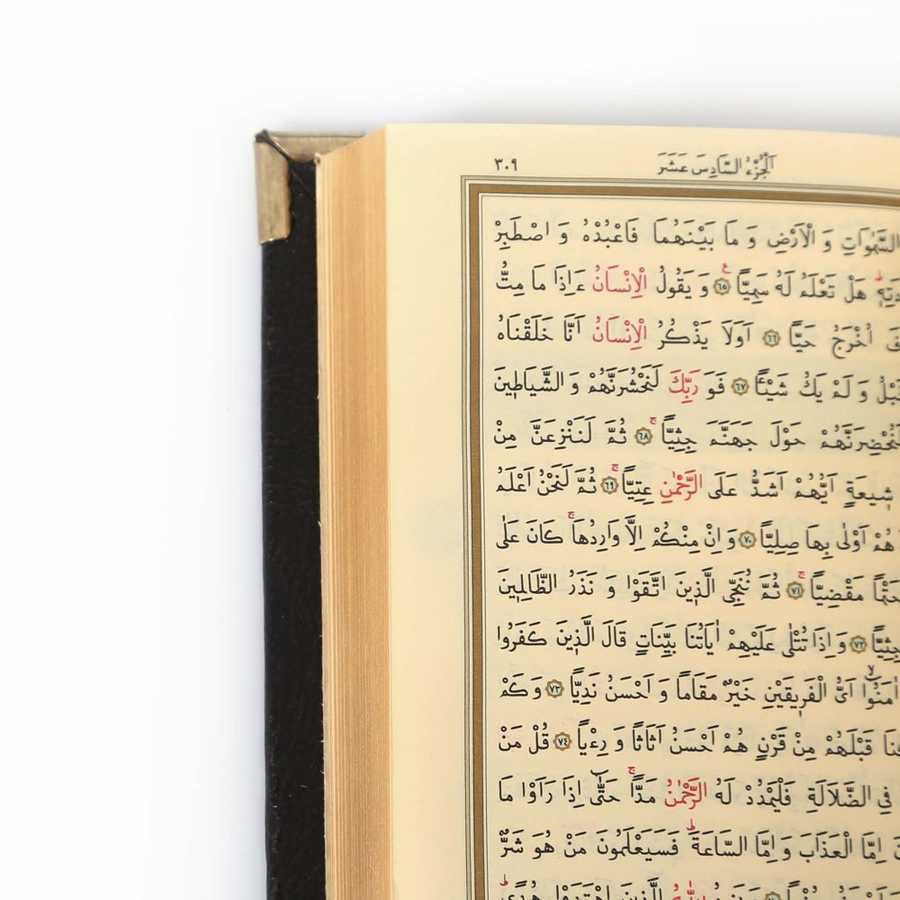 اَلْجُزْءُ السَّادِسَ عَشَرَ
٣٠٩
السَّمٰوَاتِ وَ الْاَرْضِ وَ مَا بَيْنَهُمَا فَاعْبُدْهُ وَ اصْطَبِرْ
هَلْ تَعْلَمُ لَهُ سَمِيًّاۚ ٦٥ وَ يَقُولُ الْاِنْسَانُ ءَاِذَا مَا مِتُّ
اُخْرَجُ حَيًّا ٦٦ اَوَلَا يَذْكُرُ الْاِنْسَانُ اَنَّا خَلَقْنَاهُ
وَ لَمْ يَكُ شَيْـًٔا ٦٧ فَوَ رَبِّكَ لَنَحْشُرَنَّهُمْ وَ الشَّيَاطٖينَ
لَنُحْضِرَنَّهُمْ حَوْلَ جَهَنَّمَ جِثِيًّاۚ ٦٨ ثُمَّ لَنَنْزِعَنَّ مِنْ
شٖيعَةٍ اَيُّهُمْ اَشَدُّ عَلَى الرَّحْمٰنِ عِتِيًّاۚ ٦٩ ثُمَّ لَنَحْنُ اَعْلَمُ
هُمْ اَوْلٰى بِهَا صِلِيًّا ٧٠ وَ اِنْ مِنْكُمْ اِلَّا وَارِدُهَاۚ كَانَ عَلٰى
حَتْمًا مَقْضِيًّاۚ ٧١ ثُمَّ نُنَجِّى الَّذٖينَ اتَّقَوْا وَ نَذَرُ الظَّالِمٖينَ
جِثِيًّا ٧٢ وَ اِذَا تُتْلٰى عَلَيْهِمْ اٰيَاتُنَا بَيِّنَاتٍ قَالَ الَّذٖينَ كَفَرُوا
اٰمَنُٓوا اَىُّ الْفَرٖيقَيْنِ خَيْرٌ مَقَامًا وَ اَحْسَنُ نَدِيًّا ٧٣ وَ كَمْ
قَبْلَهُمْ مِنْ قَرْنٍ هُمْ اَحْسَنُ اَثَاثًا وَ رِءْيًا ٧٤ قُلْ مَنْ
فِى الضَّلَالَةِ فَلْيَمْدُدْ لَهُ الرَّحْمٰنُ مَدًّاۚ حَتّٰٓى اِذَا رَاَوْا مَا
اِمَّا الْعَذَابَ وَ اِمَّا السَّاعَةَؕ فَسَيَعْلَمُونَ مَنْ هُوَ شَرٌّ
اللّٰهُ الَّذٖينَ اهْتَدَوْا هُدًىؕ